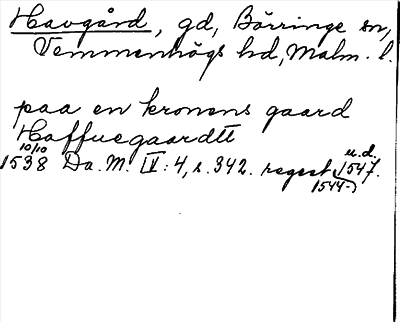 Havgård, gd, Börringe sn,
Vemmenhögs hd, Malm. l.
paa en kronens gaard
Haffuegaardtt
10/10
1538 Da. M. IV: 4, s. 342. regest u.d. 1547.
1544-